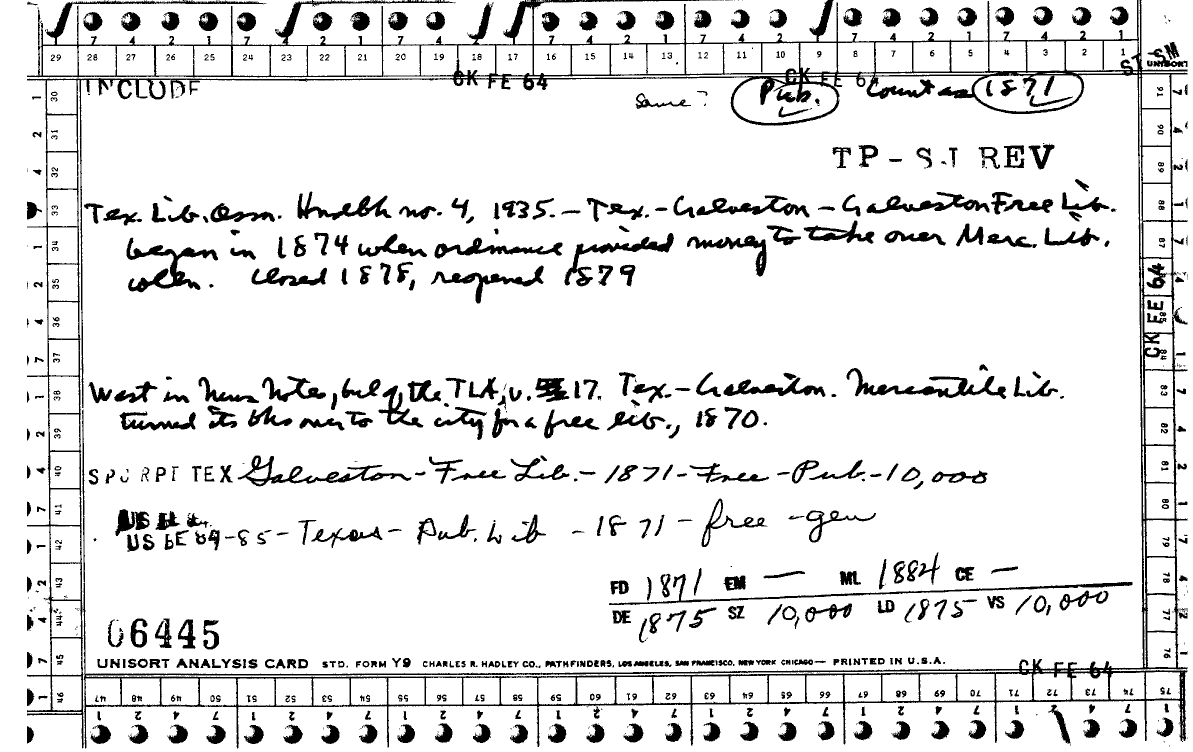 7 4 2 1 7 4 2 1 7 4 2 1 7 4 2 1 7 4 2 1 7 4 2 1 7 4 2 1
29 28 27 26 25 24 23 22 21 20 19 18 17 16 15 14 13 12 11 10 9 8 7 6 5 4 3 2 1 UNISORT
INCLUDE CK FE 64 CK FE 64 ST SM
Same? Pub. Count as 1871
TP-SJ REV
Tex. Lib. Assn. Hndbk no. 4, 1935. — Tex. - Galveston - Galveston Free Lib.
began in 1874 when ordinance provided money to take over Merc. Lib.
when. Closed 1878, reopened 1879
West in News Notes, bul of the TLA, v. 17. Tex. - Galveston. Mercantile Lib.
turned its bks over to the city for a free lib., 1870.
SPC RPT TEX Galveston - Free Lib. - 1871 - Free - Pub. - 10,000
US BE 84-85 - Texas - Pub. Lib - 1871 - free - gen
FD 1871 EM — ML 1884 CE —
DE 1875 SZ 10,000 LD 1875 VS 10,000
06445
UNISORT ANALYSIS CARD STD. FORM Y9 CHARLES R. HADLEY CO., PATHFINDERS, LOS ANGELES, SAN FRANCISCO, NEW YORK CHICAGO — PRINTED IN U.S.A.
CK FE 64
CK FE 64
30 31 32 33 34 35 36 37 38 39 40 41 42 43 44 45 46
47 48 49 50 51 52 53 54 55 56 57 58 59 60 61 62 63 64 65 66 67 68 69 70 71 72 73 74 75